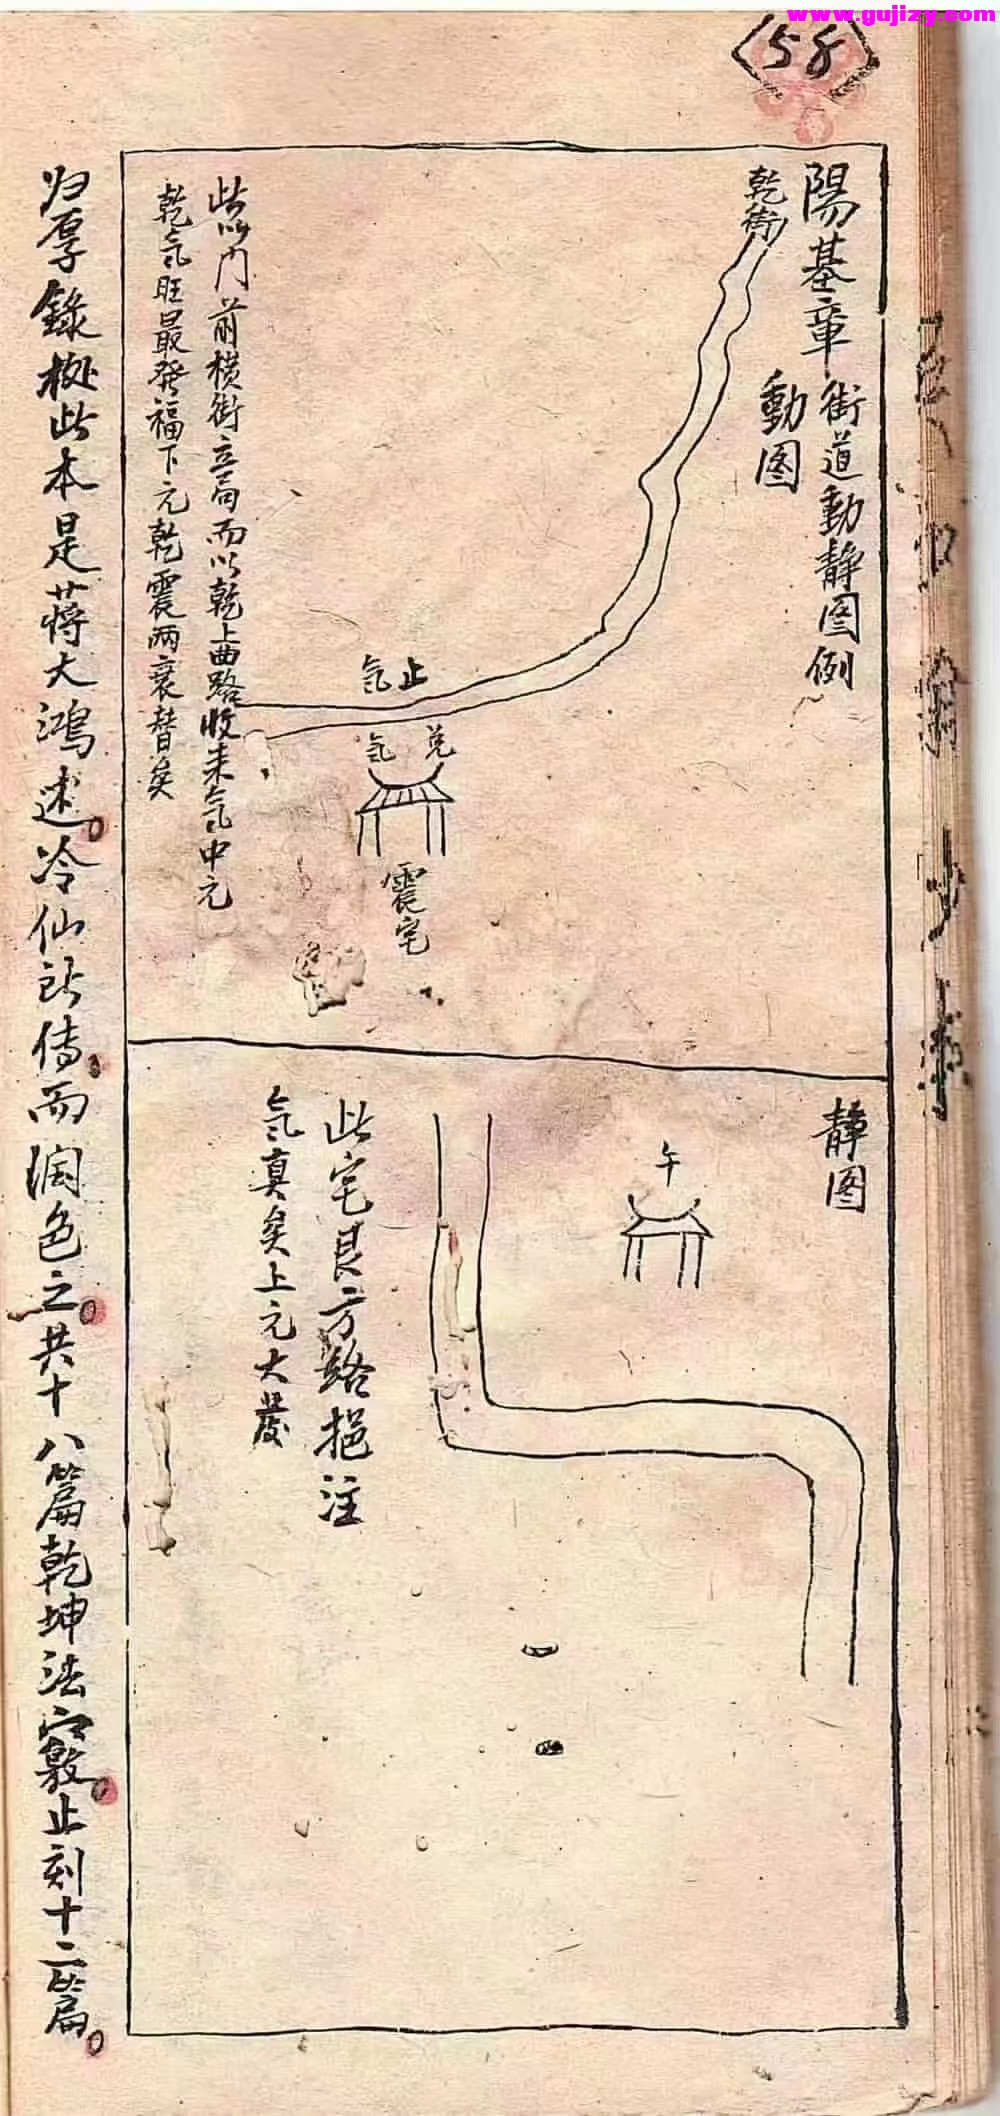 www.gujizy.com
58
陽基章 街道動静图例
動图
乾街
止气
兑气
震宅
此以门前横街立局而以乾上曲路收来气中元
乾气旺最発福下元乾震两衰替矣
静图
午
此宅艮方路挹注
气真矣上元大发
归厚錄极此本是蒋大鴻述冷仙所傳而润色之共十八篇乾坤法竅止刻十二篇